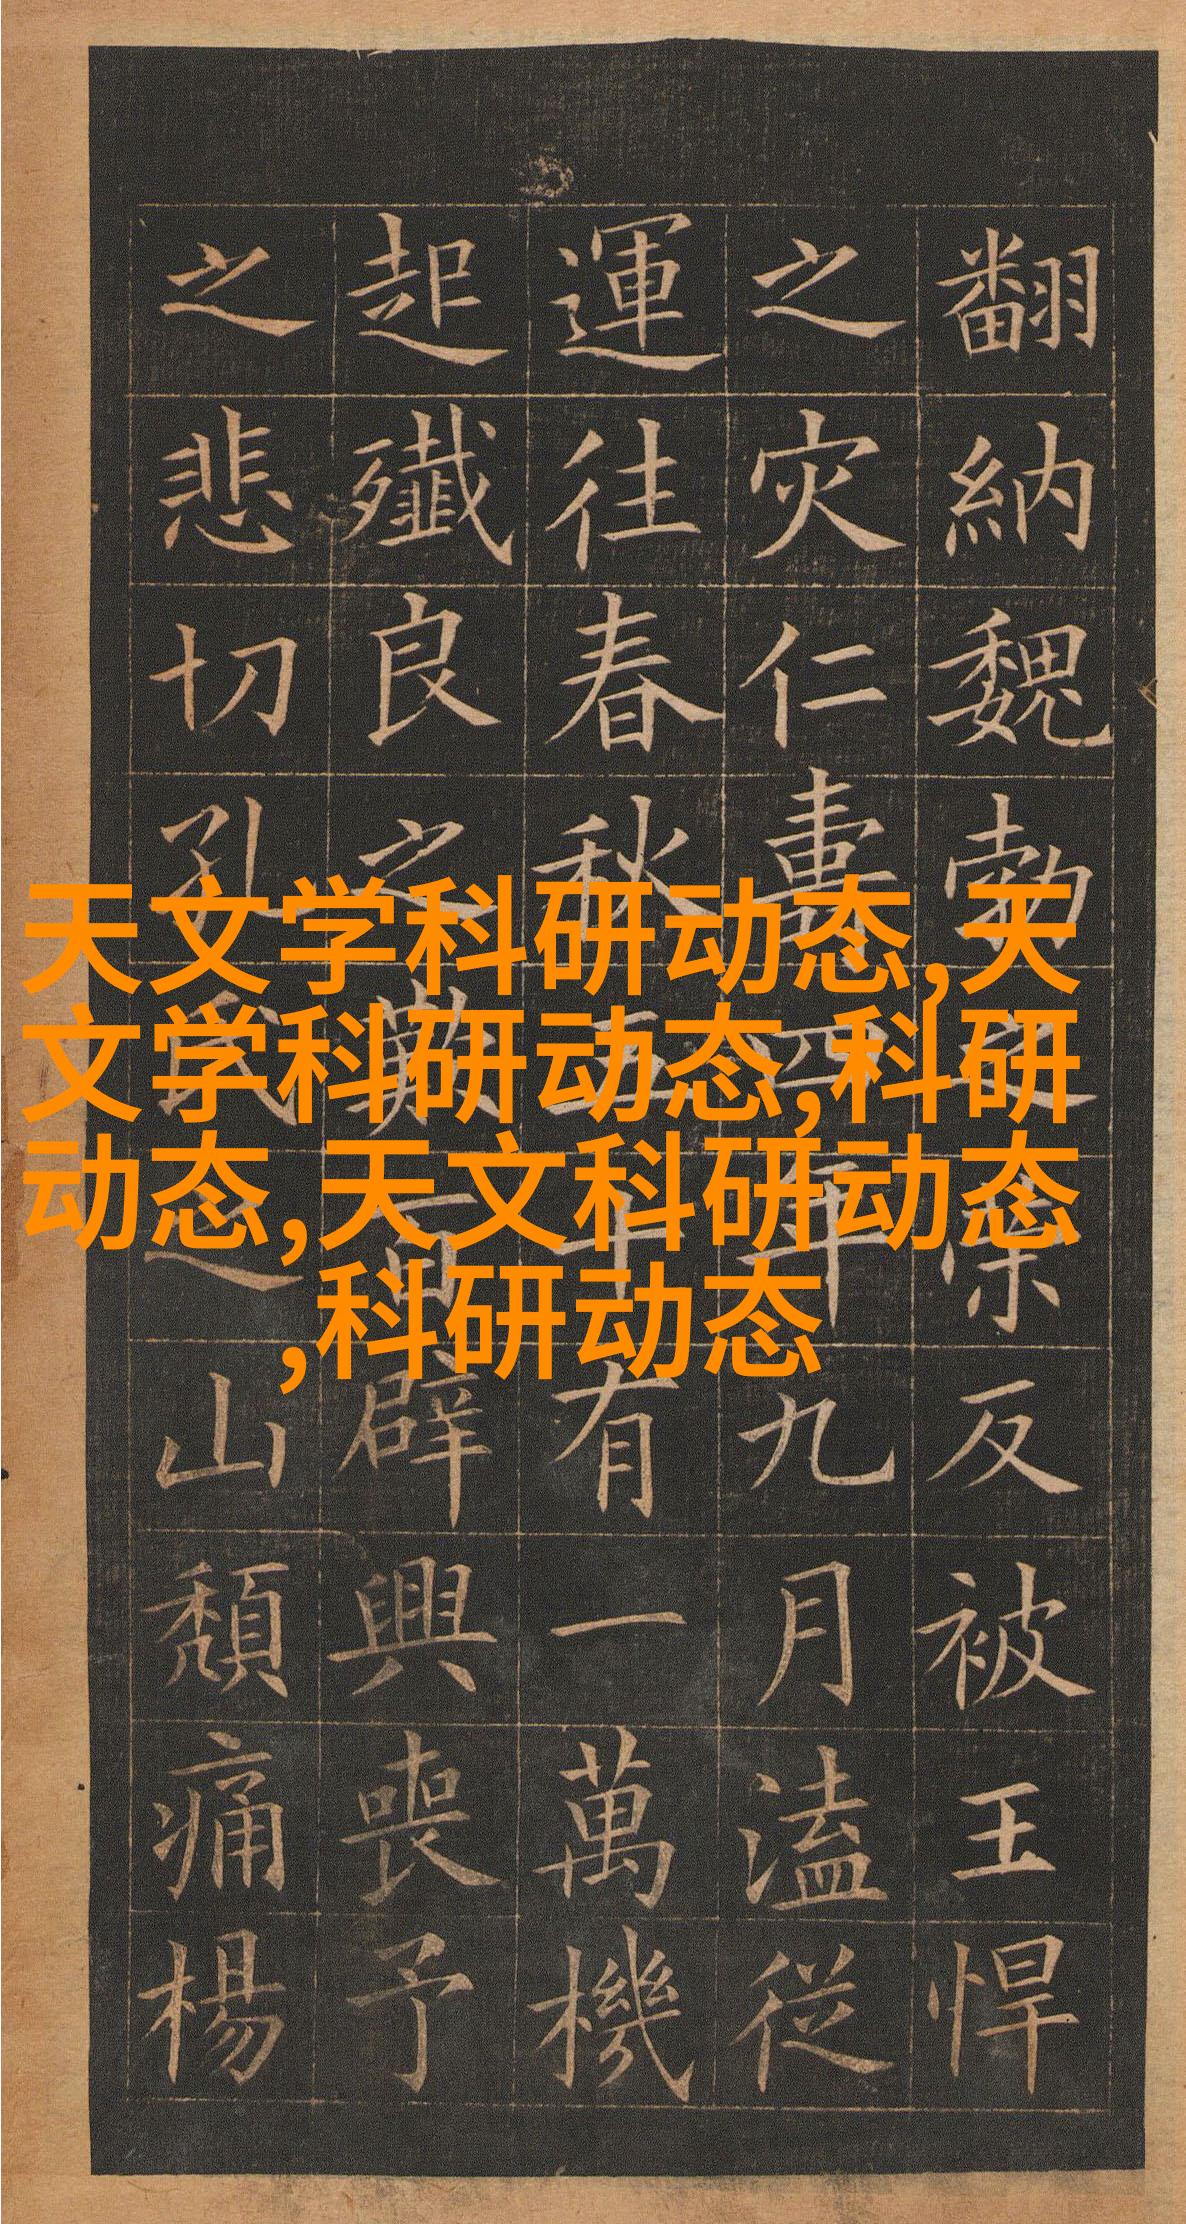 翻納魏勃之祟反被王悍
之灾仁壽四年九月溘從
運往春秋五十有一萬機
起殲良之歎百辟興喪予
之悲切孔氏之山頹痛楊
天文学科研动态,天
文学科研动态,科研
动态,天文科研动态
,科研动态